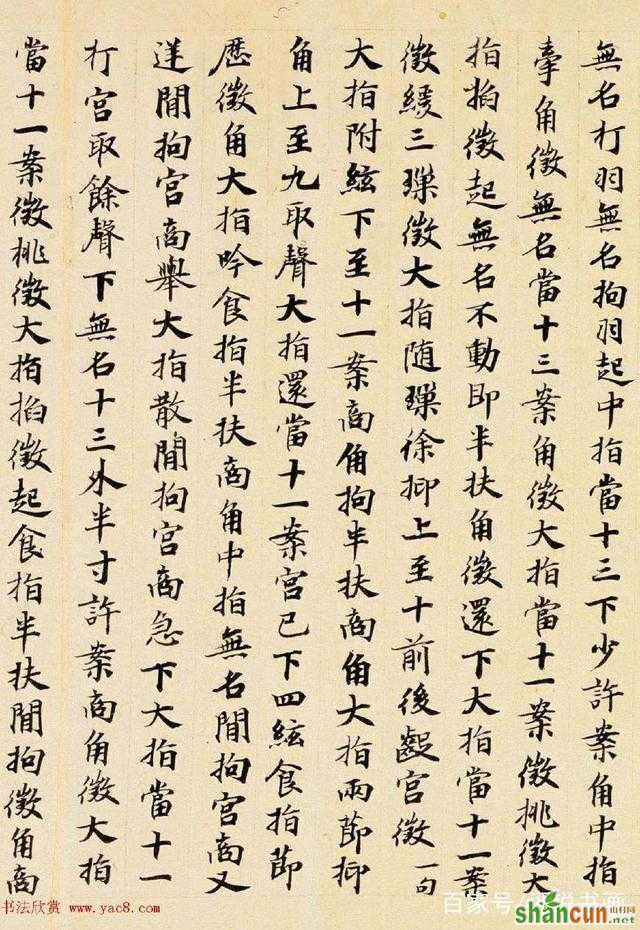 無名打羽無名拘羽起中指當十三下少許案角中指
牽角徵無名當十三案角徵大指當十一案徵挑徵大
指掐徵起無名不動即半扶角徵還下大指當十一案
徵緩三徵大指随徐抑上至十前後齪宮徵一句
大指附絃下至十一案商角拘半扶商角大指兩節抑
角上至九取聲大指還當十一案宮已下四絃食指節
歷徵角大指吟食指半扶商角中指無名閒拘宮商又
閒拘宮商舉大指散閒拘宮商急下大指當十一
打宮取餘聲下無名十三外半寸許案商角徵大指
當十一案徵挑徵大指掐徵起食指半扶閒拘徵角商
书法欣赏 www.yac8.com
百家号
shancun.net
山村网